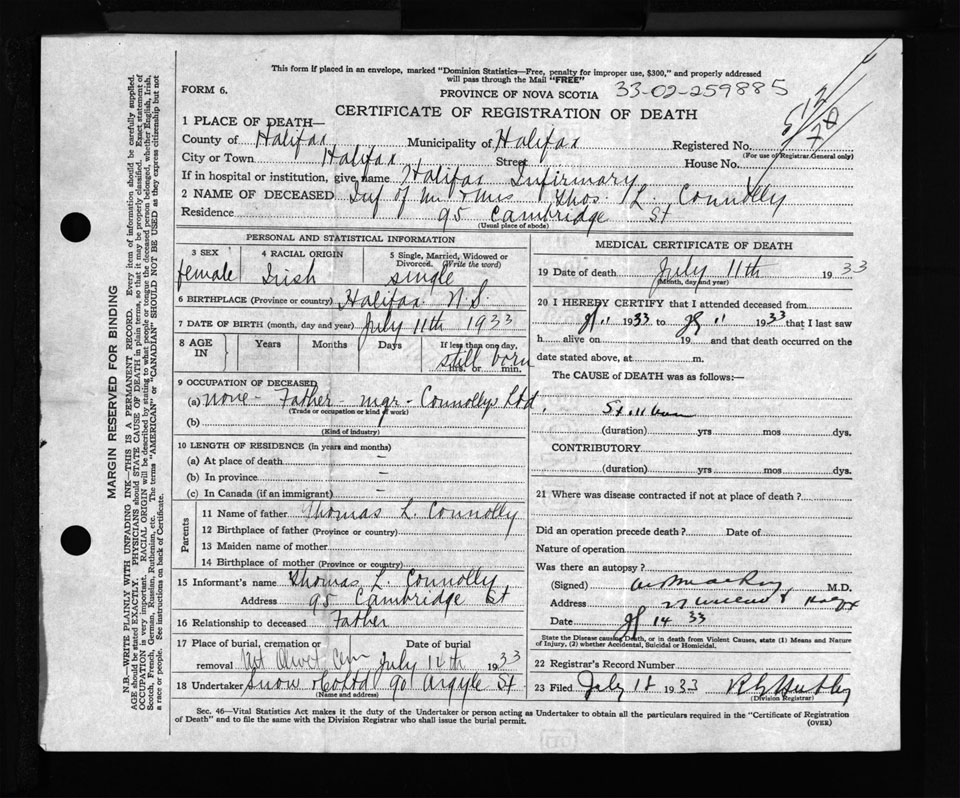 This form if placed in an envelope, marked "Dominion Statistics—Free, penalty for improper use, $300," and properly addressed
will pass through the Mail "FREE"
FORM 6.
PROVINCE OF NOVA SCOTIA 33-02-259885
CERTIFICATE OF REGISTRATION OF DEATH
1 PLACE OF DEATH—
County of Halifax Municipality of Halifax Registered No.
(For use of Registrar General only)
City or Town Halifax Street House No.
If in hospital or institution, give name Halifax Infirmary
2 NAME OF DECEASED Inf of Mr & Mrs Thos. L. Connolly
Residence 95 Cambridge St
(Usual place of abode)
PERSONAL AND STATISTICAL INFORMATION
3 SEX
female
4 RACIAL ORIGIN
Irish
5 Single, Married, Widowed or
Divorced. (Write the word)
single
6 BIRTHPLACE (Province or country) Halifax N.S.
7 DATE OF BIRTH (month, day and year) July 11th 1933
8 AGE IN
Years Months Days
If less than one day,
still born
hrs. or min.
9 OCCUPATION OF DECEASED
(a) none - Father - mgr - Connollys Ltd.
(Trade or occupation or kind of work)
(b)
(Kind of industry)
10 LENGTH OF RESIDENCE (in years and months)
(a) At place of death —
(b) In province —
(c) In Canada (if an immigrant) —
Parents
11 Name of father Thomas L. Connolly
12 Birthplace of father (Province or country)
13 Maiden name of mother
14 Birthplace of mother (Province or country)
15 Informant's name Thomas L. Connolly
Address 95 Cambridge St
16 Relationship to deceased Father
17 Place of burial, cremation or Date of burial
removal Mt Olivet Cem July 14th 1933
18 Undertaker Snow & Co Ltd 90 Argyle St
(Name and address)
MEDICAL CERTIFICATE OF DEATH
19 Date of death July 11th 1933
(Month, day and year)
20 I HEREBY CERTIFY that I attended deceased from
11 1933 to 11 1933 that I last saw
h alive on 19 and that death occurred on the
date stated above, at m.
The CAUSE OF DEATH was as follows:—
Stillborn
(duration) yrs mos dys.
CONTRIBUTORY
(duration) yrs mos dys.
21 Where was disease contracted if not at place of death?
Did an operation precede death? Date of
Nature of operation
Was there an autopsy?
(Signed) M.D.
Address
Date 14 33
State the Disease causing Death, or in death from Violent Causes, state (1) Means and Nature
of Injury, (2) whether Accidental, Suicidal or Homicidal.
22 Registrar's Record Number
23 Filed July 18 1933
(Division Registrar)
Sec. 46—Vital Statistics Act makes it the duty of the Undertaker or person acting as Undertaker to obtain all the particulars required in the "Certificate of Registration
of Death" and to file the same with the Division Registrar who shall issue the burial permit.
(OVER)
MARGIN RESERVED FOR BINDING
N.B.—WRITE PLAINLY WITH UNFADING INK—THIS IS A PERMANENT RECORD. Every item of information should be carefully supplied.
AGE should be stated EXACTLY. PHYSICIANS should STATE CAUSE OF DEATH in plain terms, so that it may be properly classified. Exact statement of
OCCUPATION is very important. RACIAL ORIGIN will be described by stating to what people or tongue the deceased person belonged, whether English, Irish,
Scotch, French, German, Russian, Ruthenian, etc. The terms "AMERICAN" or "CANADIAN" SHOULD NOT BE USED as they express citizenship but not
a race or people. See instructions on back of Certificate.